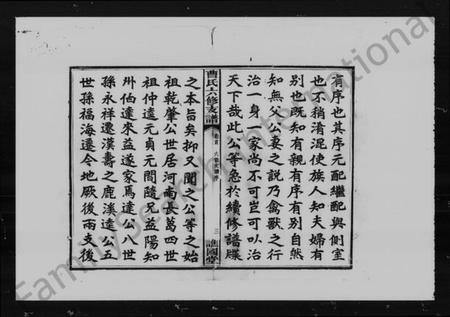 有序也其序元配繼配與側室
也不稍淆混使族人知夫婦有
別也既知有親有序有別自然
知無父公妻之說乃禽獸之行
治一身一家尚不可豈可以治
天下哉此公等急於續修譜牒
曹氏六修支譜
卷首
三
譙國堂
之本旨矣抑又聞之公等之始
祖乾肇公世居河南長葛四世
祖仲遠元貞元間隨兄益陽知
州伯達來益遂家焉達公八世
孫永祥遷漢壽之鹿溪遠公五
世孫福海遷今地厥後兩支後
FamilySearch International